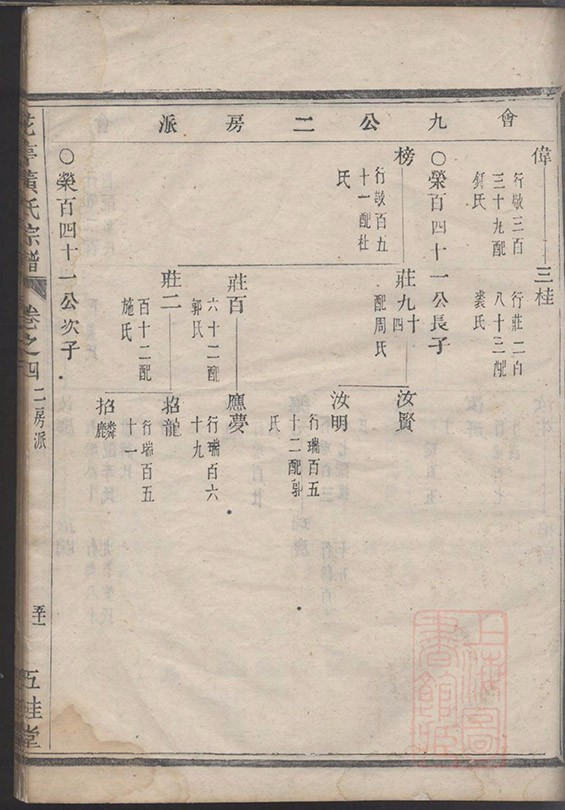 會九公二房派
偉
行敬三百
三十九配
氏
三桂
行莊二百
八十三配
裘氏
○榮百四十一公長子
榜
行敬百五
十一配杜
氏
莊九十
四
配周氏
汝賢
汝明
行瑞百五
十二配郭
氏
莊百
六十二配
郭氏
應夢
行瑞百六
十九
莊二
百十二配
施氏
招龍
行瑞百五
十一
招麟
○榮百四十一公次子
花亭黃氏宗譜
卷之四
二房派
五桂堂
上海
書館